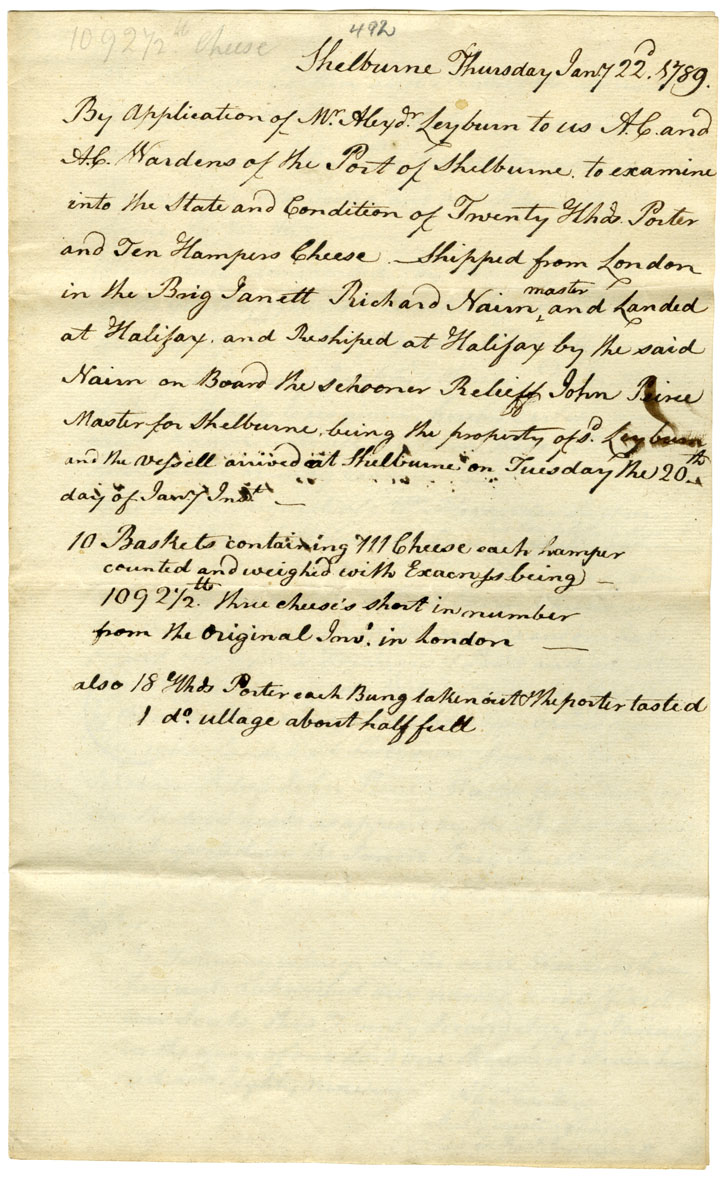 1092½ lb Cheese
492
Shelburne Thursday Jany 22d. 1789.
By Application of Mr. Alexdr. Leyburn to us A.C. and
A.C. Wardens of the Port of Shelburne. to examine
into the State and Condition of Twenty Hhds. Porter
and Ten Hampers Cheese. — Shipped from London
in the Brig Janett Richard Nairn master and Landed
at Halifax. and Reshiped at Halifax by the said
Nairn on Board the schooner Relieff John Peirce
Master for Shelburne. being the property of sd. Leyburn
and the Vessell arrived at Shelburne on Tuesday the 20th
day of Jany Inst —
10 Baskets containing 111 Cheese each hamper
counted and weighd with Exacness being —
1092½ lb. three cheese's short in number
from the Original Invo. in London —
also 18 Hhds Porter each Bung taken out & the porter tasted
1 do. ullage about half full